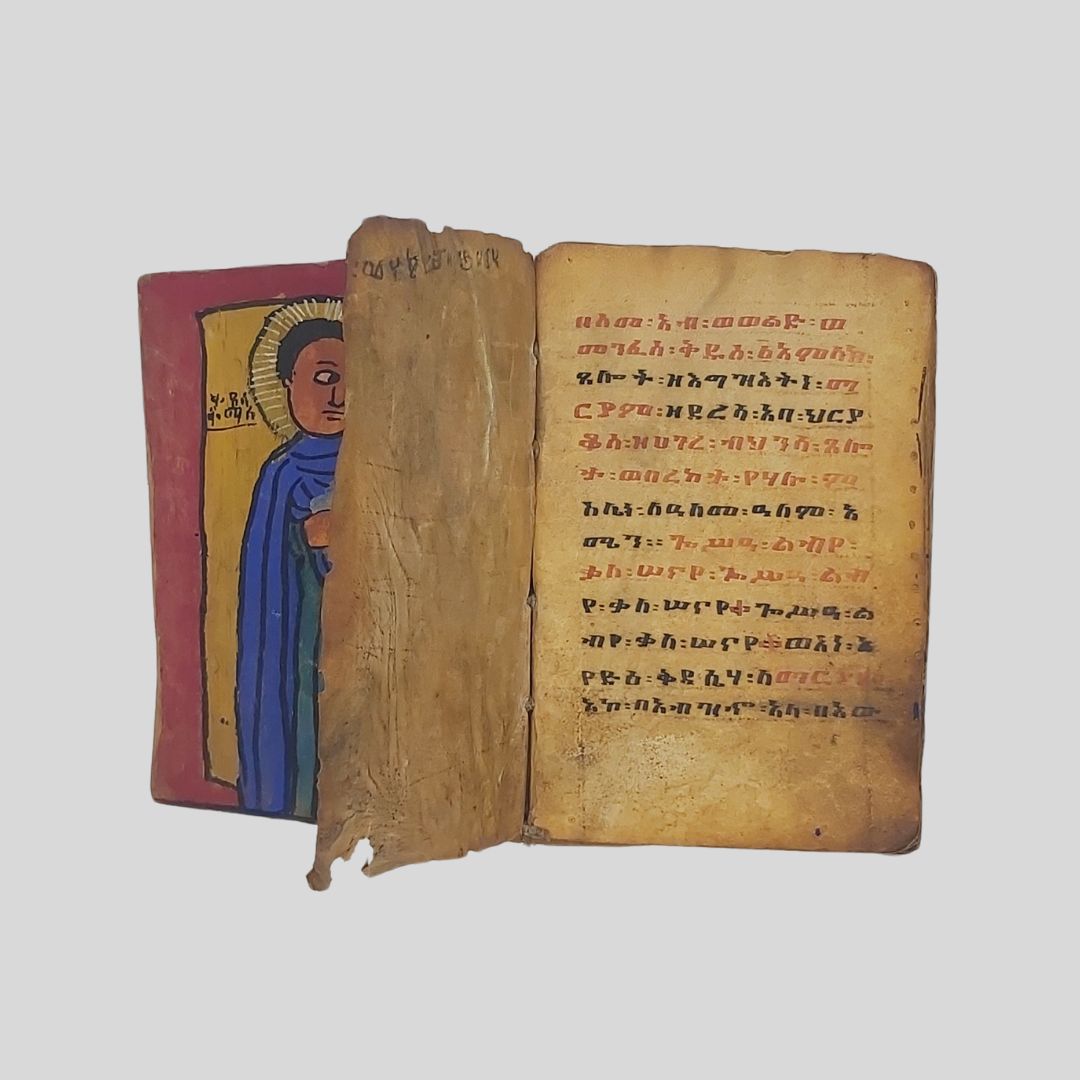 በስመ፡አብ፡ወወልድ፡ወ
መንፈስ፡ቅዱስ፡፩አምላክ፡
ጸሎት፡ዘእግዝእትነ፡ማ
ርያም፡ዘደረሳ፡አባ፡ህርያ
ቆስ፡ዘሀገረ፡ብህንሳ፡ጸሎ
ታ፡ወበረከታ፡የሃሉ፡ም
ስሌነ፡ለዓለመ፡ዓለም፡አ
ሜን። ጐሥዓ፡ልብየ፡
ቃለ፡ሠናየ፡ጐሥዓ፡ልብ
የ፡ቃለ፡ሠናየ ጐሥዓ፡ል
ብየ፡ቃለ፡ሠናየ ወአነ፡አ
የድዕ፡ቅዳሴሃ፡ለማርያም፡
አኮ፡በአብዝኆ፡አላ፡በአው